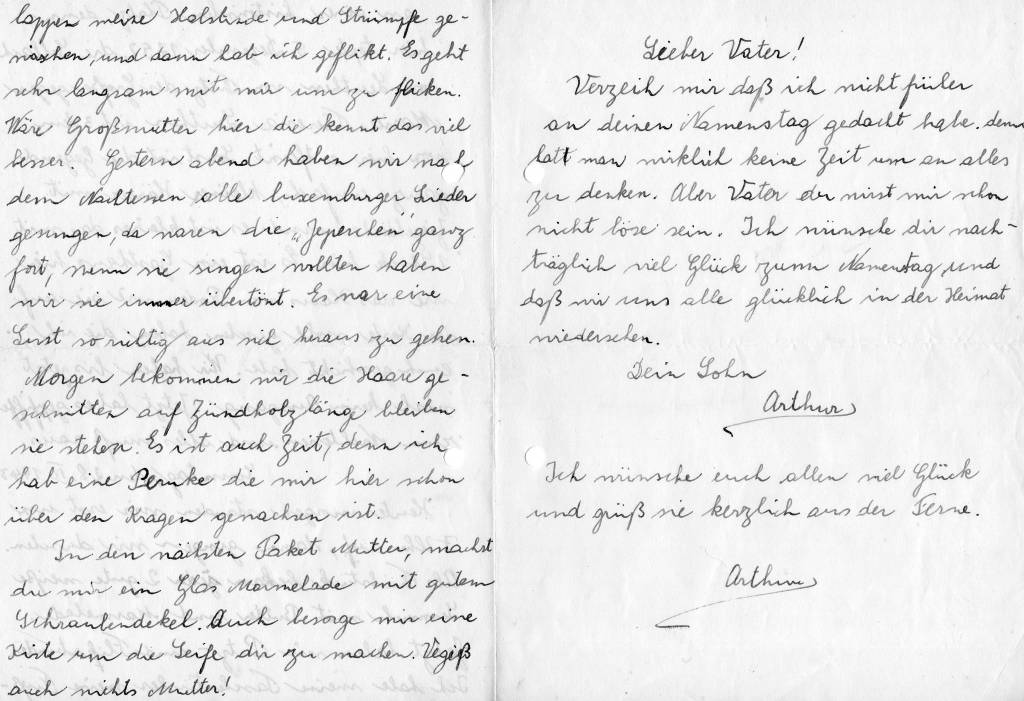 lappen meine Halsbinde und Strümpfe ge-
waschen, und dann hab ich geflikt. Es geht
sehr langsam mit mir um zu fliken.
Wäre Großmutter hier die kennt das viel
besser. Gestern abend haben wir nach
dem Nachtessen alle luxemburger Lieder
gesungen, da waren die „Jeperchen" ganz
fort, wenn sie singen wollten haben
wir sie immer übertönt. Es war eine
Lust so richtig aus sich heraus zu gehen.
Morgen bekommen wir die Haare ge-
schnitten auf Zündholzlänge bleiben
sie stehen. Es ist auch Zeit, denn ich
hab eine Peruke die mir hier schon
über den Kragen gewachsen ist.
In den nächsten Paket Mutter, machst
du mir ein Glas Marmelade mit gutem
Schraubendekel. Auch besorge mir eine
Kiste um die Seife dir zu machen. Vegiß
auch nichts Mutter!
Lieber Vater!
Verzeih mir daß ich nicht früher
an deinen Namenstag gedacht habe. denn
hatt man wirklich keine Zeit um an alles
zu denken. Aber Vater du wirst mir schon
nicht böse sein. Ich wünsche dir nach-
träglich viel Glück zum Namenstag, und
daß wir uns alle glücklich in der Heimat
wiedersehen.
Dein Sohn
Arthur
Ich wünsche euch allen viel Glück
und grüß sie herzlich aus der Ferne.
Arthur